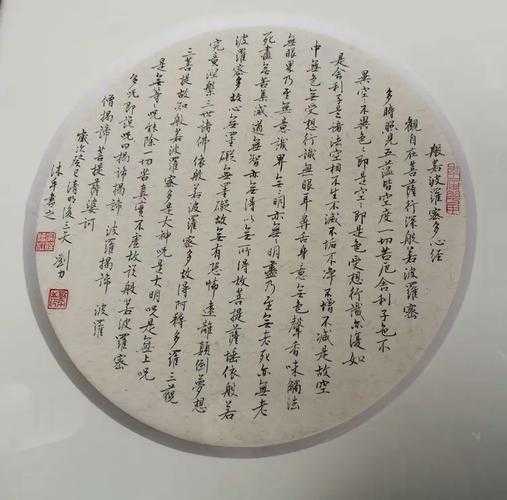 般若波羅蜜多心經
觀自在菩薩行深般若波羅蜜
多時照見五蘊皆空度一切苦厄舍利子色不
異空〻不異色〻即是空〻即是色受想行識亦復如
是舍利子是諸法空相不生不滅不垢不淨不增不減是故空
中無色無受想行識無眼耳鼻舌身意無色聲香味觸法
無眼界乃至無意識界無〻明亦無〻明盡乃至無老死亦無老
死盡無苦集滅道無智亦無得以無所得故菩提薩埵依般若
波羅蜜多故心無罣礙無罣礙故無有恐怖遠離顛倒夢想
究竟涅槃三世諸佛依般若波羅蜜多故得阿耨多羅三藐
三菩提故知般若波羅蜜多是大神咒是大明咒是無上咒
是無等等咒能除一切苦真實不虛故說般若波羅蜜
多咒即說咒曰揭諦揭諦 波羅揭諦 波羅
僧揭諦 菩提薩婆訶
歲次癸巳清明後三天 劉力
沐手書之